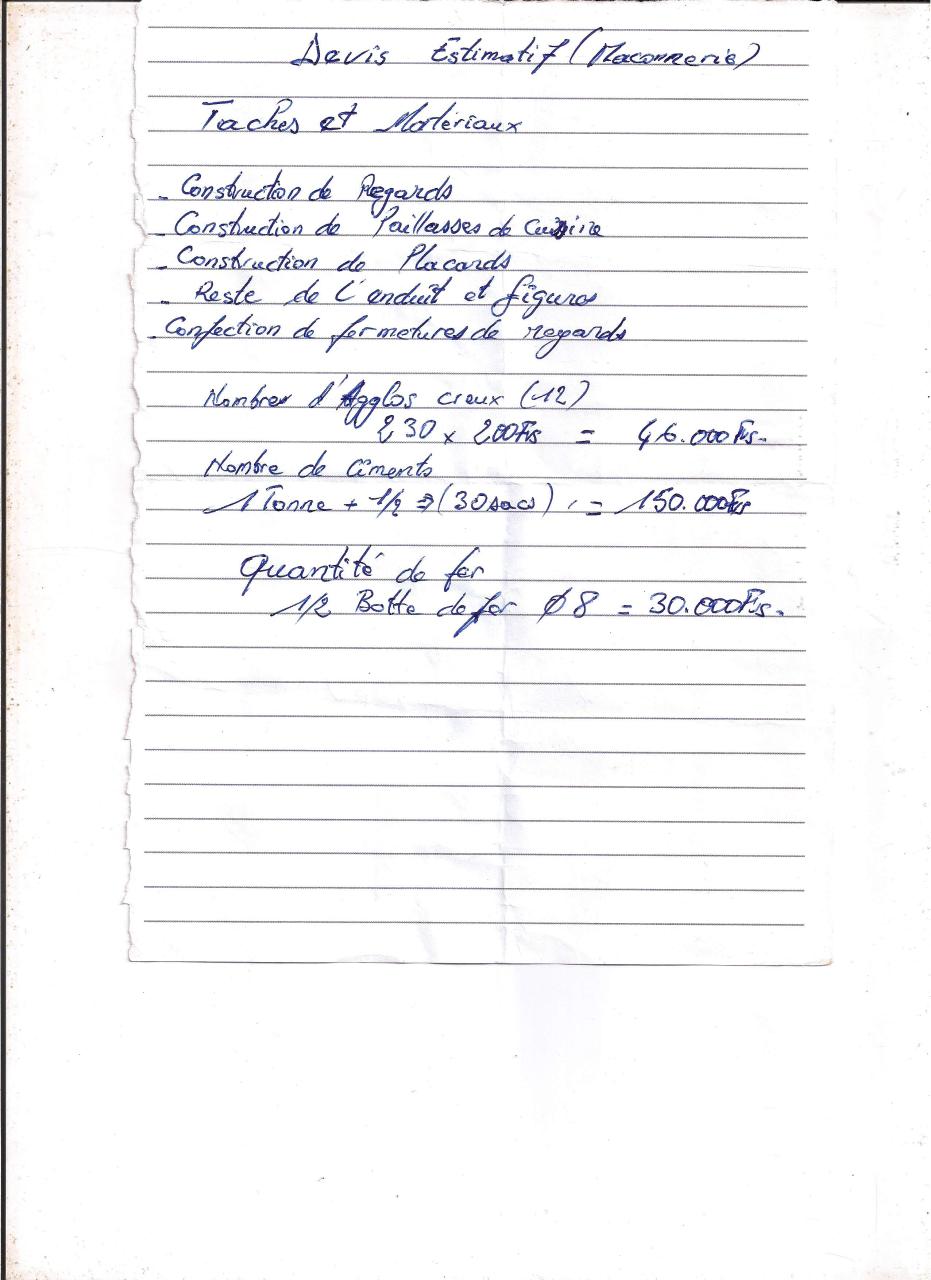 Devis Estimatif (Maconnerie)
Taches et Matériaux
- Construction de Regards
- Construction de Paillasses de Cuisine
- Construction de Placards
- Reste de l'enduit et figuros
- Confection de fermetures de regards
Nombres d'Agglos creux (12)
230 x 200Frs = 46.000Frs.
Nombre de Ciments
1 Tonne + 1/2 => (30sacs) = 150.000Frs
Quantité de fer
1/2 Botte de fer Ø8 = 30.000Frs.